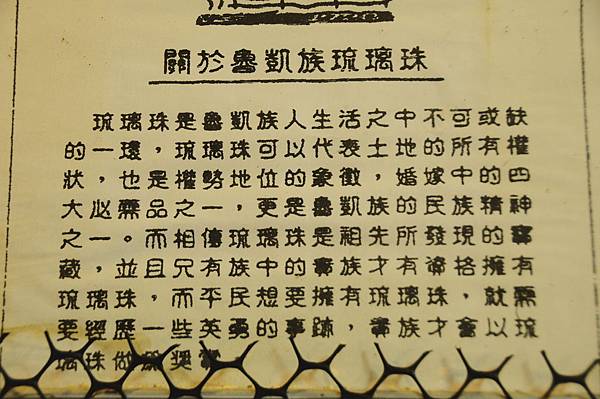 關於魯凱族琉璃珠
琉璃珠是魯凱族人生活之中不可或缺
的一環，琉璃珠可以代表土地的所有權
狀，也是權勢地位的象徵，婚嫁中的四
大必需品之一，更是魯凱族的民族精神
之一。而相傳琉璃珠是祖先所發現的寶
藏，並且只有族中的貴族才有資格擁有
琉璃珠，而平民想要擁有琉璃珠，就需
要經歷一些英勇的事跡，貴族才會以琉
璃珠做為獎賞